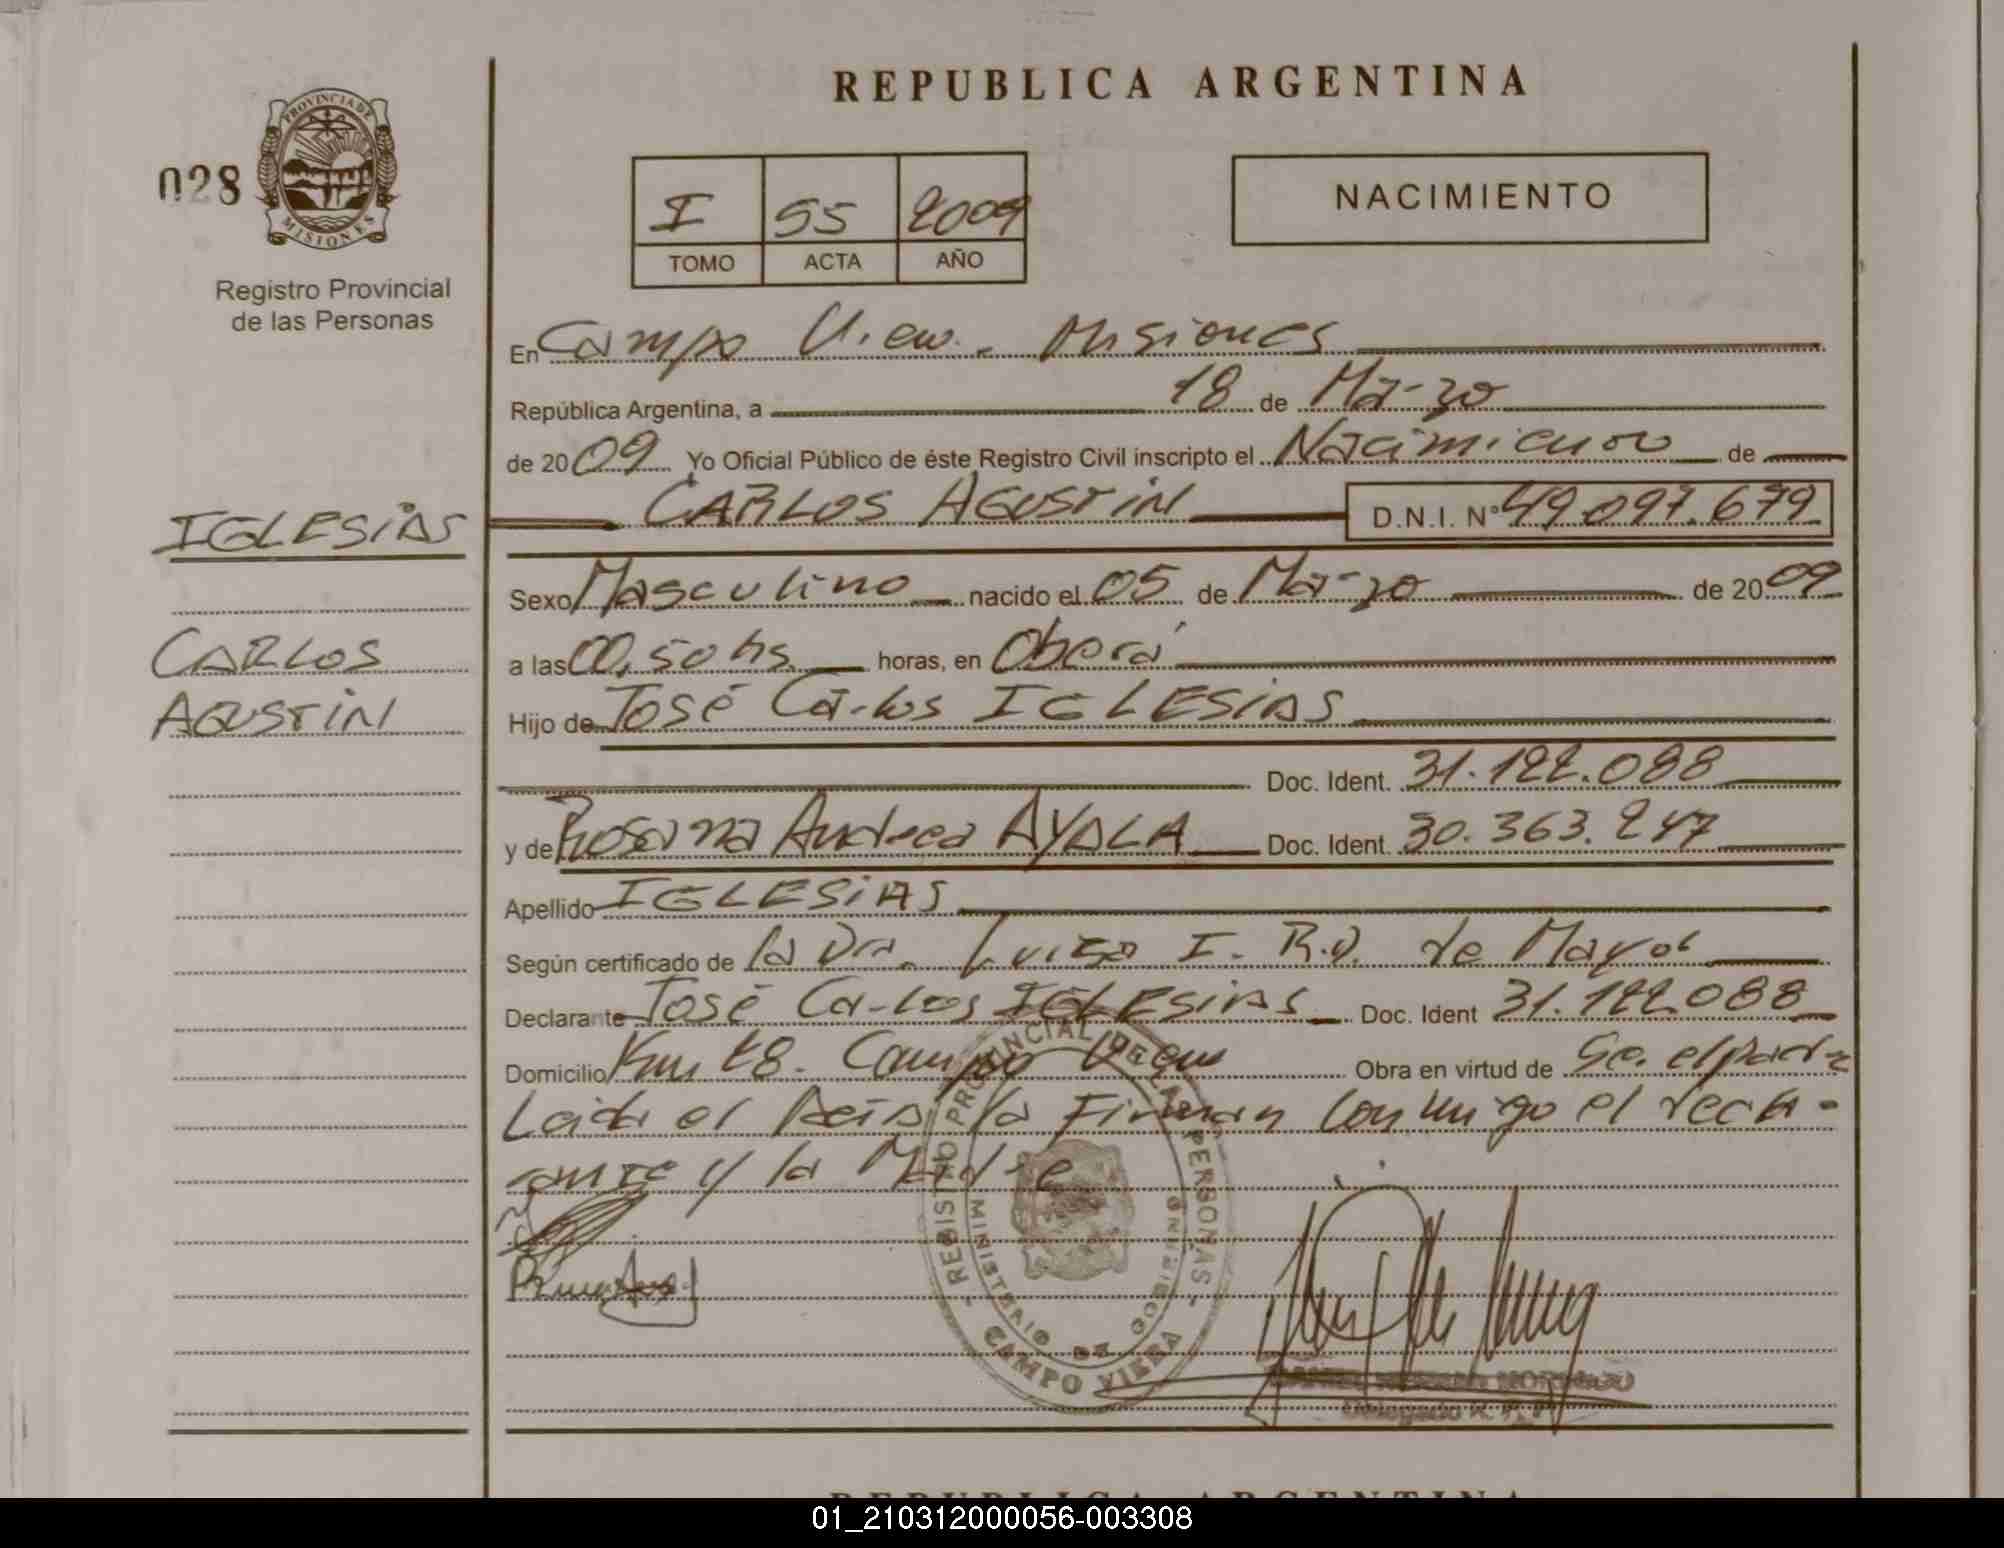 REPUBLICA ARGENTINA
028
PROVINCIA DE
MISIONES
Registro Provincial
de las Personas
I 55 2009
TOMO ACTA AÑO
NACIMIENTO
En Campo Viera. Misiones
República Argentina, a 18 de Marzo
de 2009 Yo Oficial Público de éste Registro Civil inscripto el Nacimiento de
IGLESIAS
CARLOS AGUSTIN D.N.I. N° 49.097.679
Sexo Masculino nacido el 05 de Marzo de 2009
CARLOS
a las 00,50 hs horas, en Oberá
AGUSTIN
Hijo de José Carlos IGLESIAS
Doc. Ident. 31.122.088
y de Rosana Andrea AYALA Doc. Ident. 30.363.247
Apellido IGLESIAS
Según certificado de la Dra. Luisa I. R.D. de Mayol
Declarante José Carlos IGLESIAS Doc. Ident 31.122.088
Domicilio Km 18. Campo Viera Obra en virtud de Se. el padre
Leida el Acta la Firman conmigo el decla-
rante y la Madre
REGISTRO PROVINCIAL DE LAS PERSONAS
MINISTERIO DE GOBIERNO
CAMPO VIERA
Delegado R. P. P.
REPUBLICA ARGENTINA
01_210312000056-003308